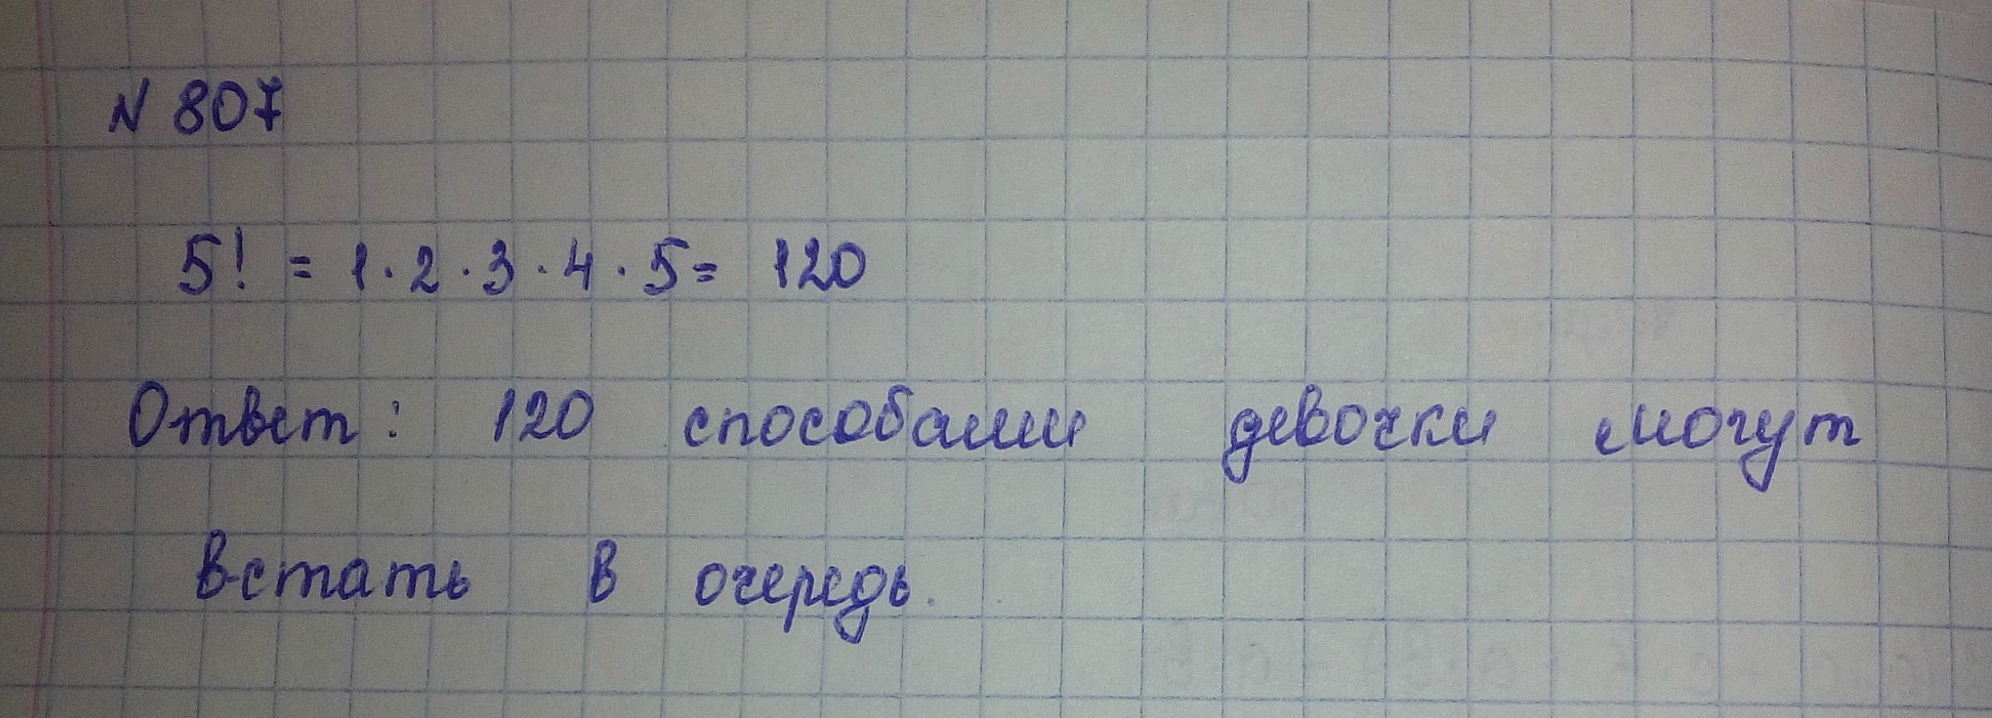 N 807
5! = 1 · 2 · 3 · 4 · 5 = 120
Ответ: 120 способами девочки могут
встать в очередь.